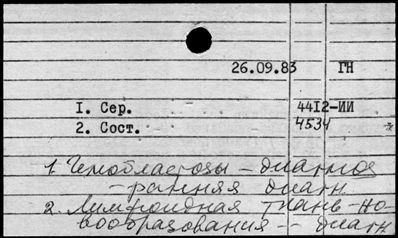 26.09.83 ГН
I. Сер. 44I2-ИИ
2. Сост. 4534
1. Гемобластозы – диагноз
- ранняя диагн.
2. Лимфоидная ткань - но-
вообразования -- диагн